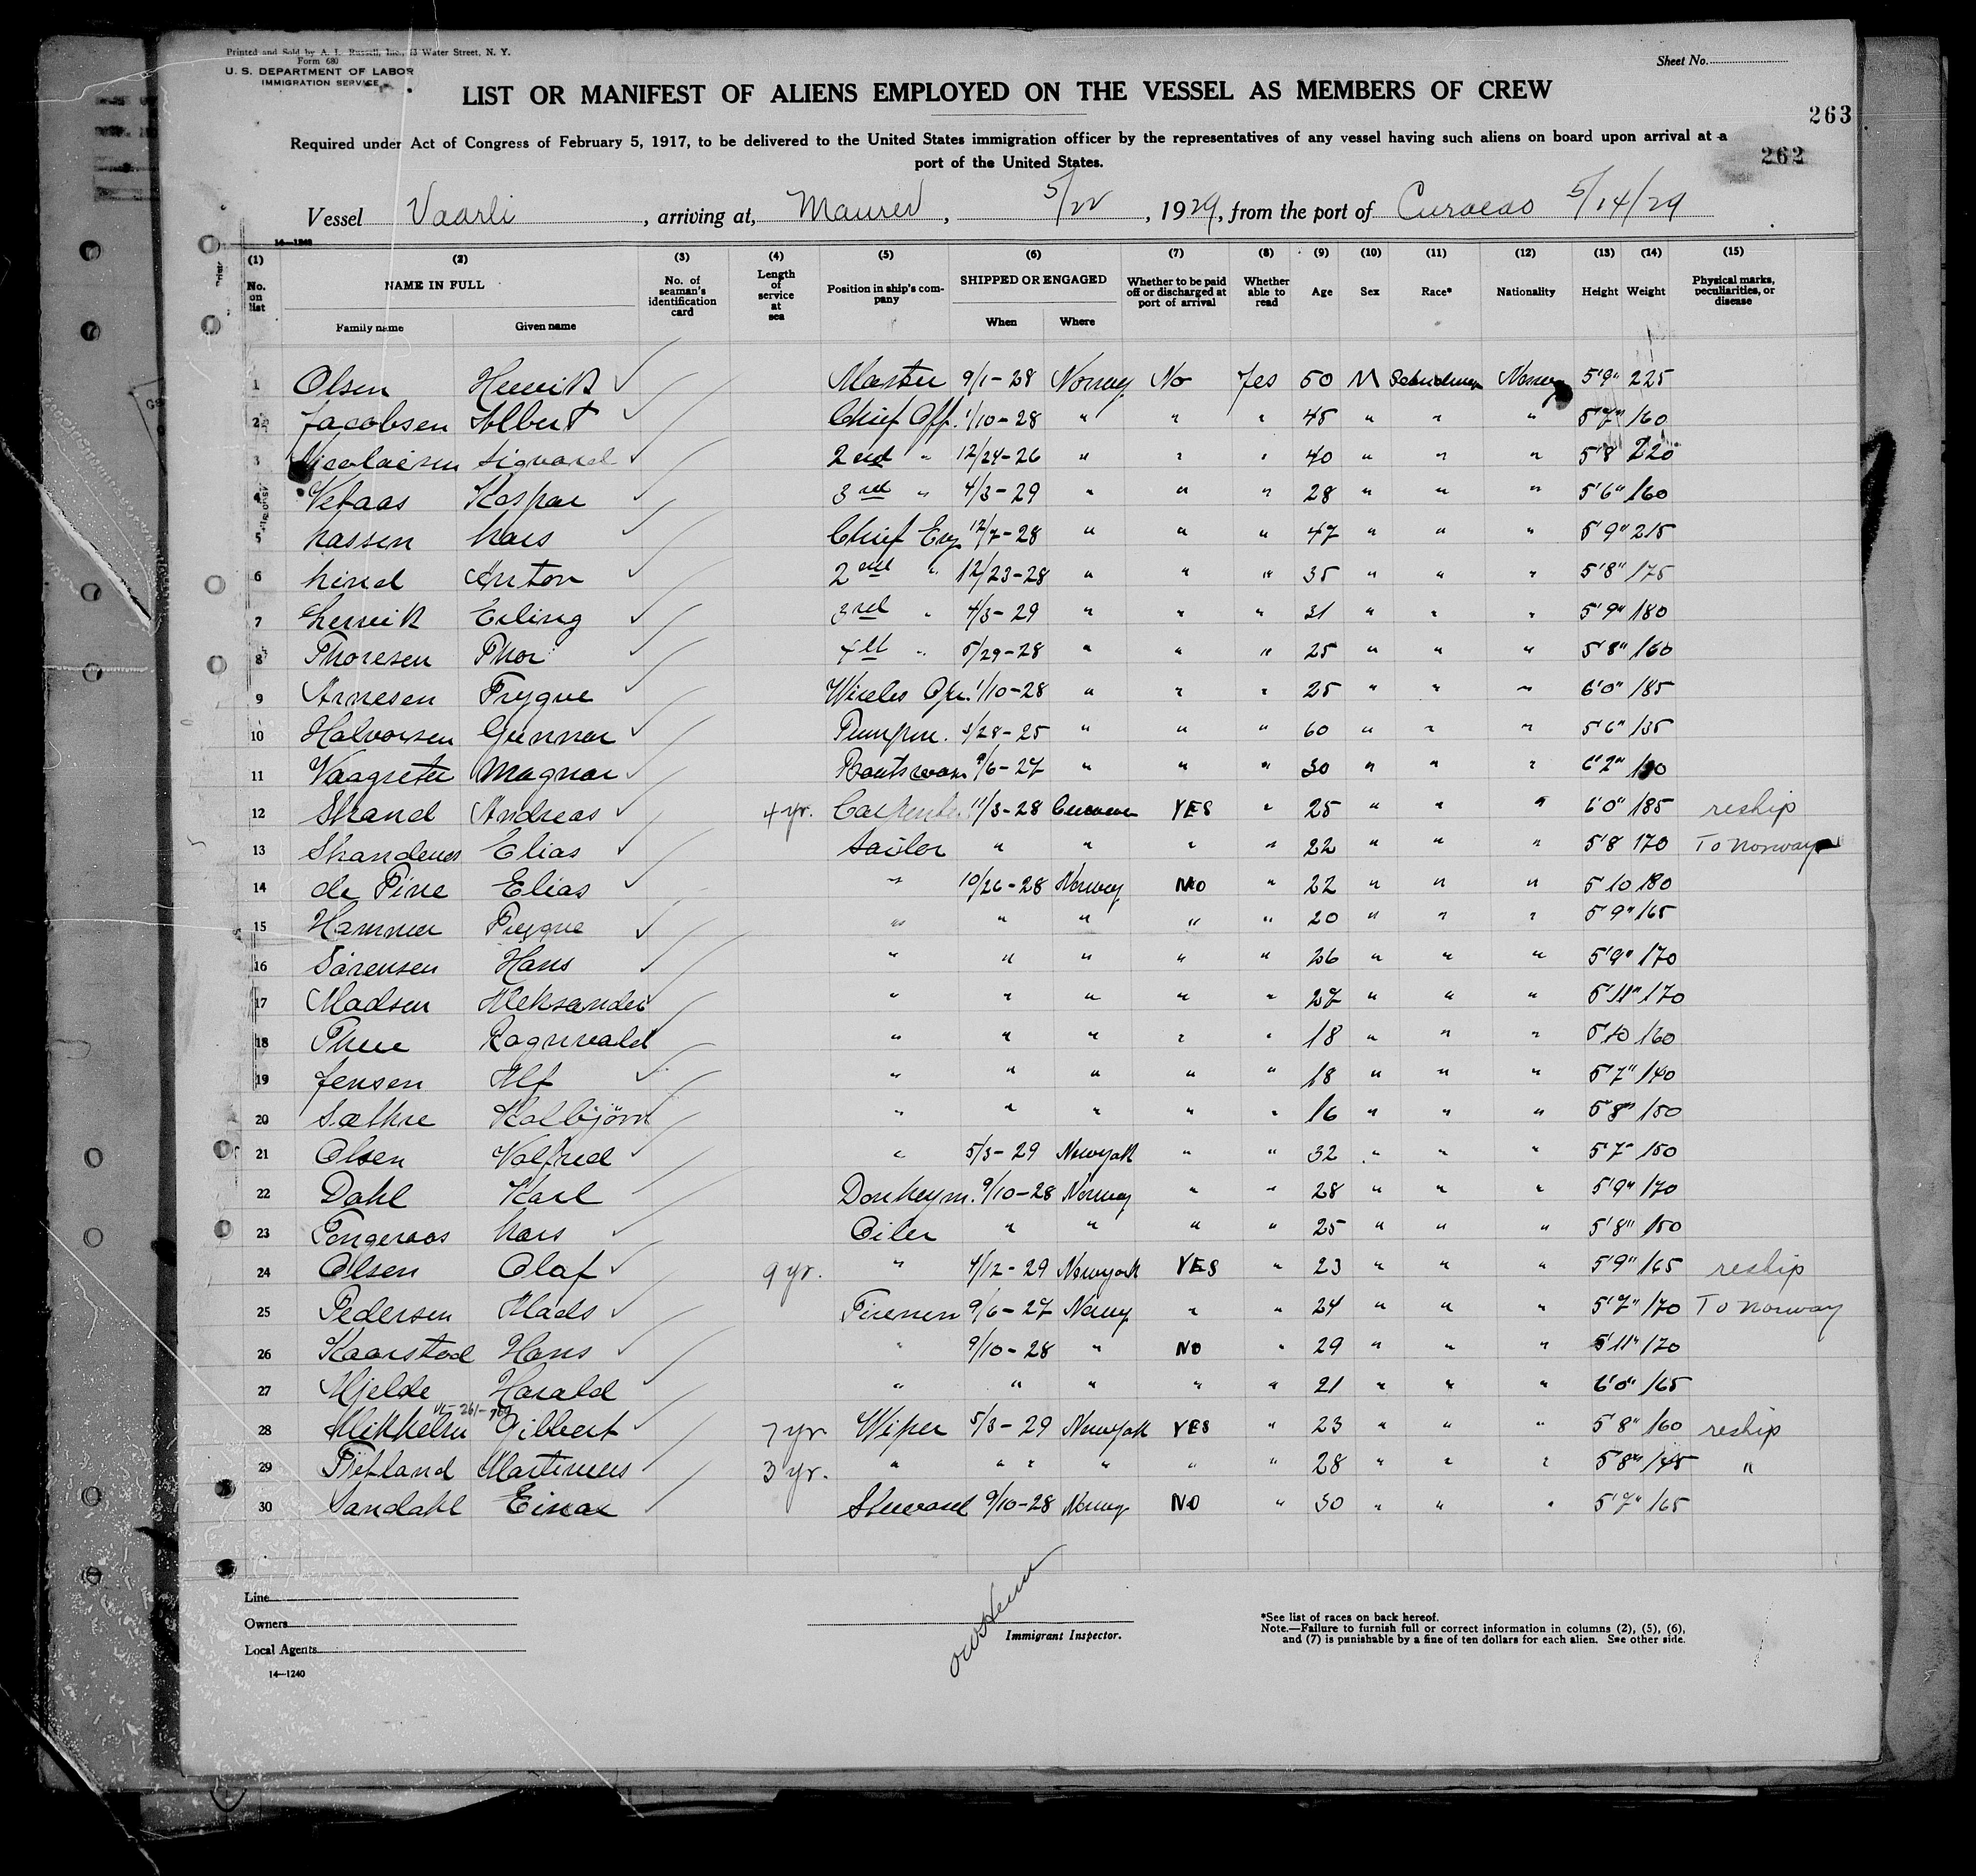 Printed and Sold by A. L. Russell, Inc., 13 Water Street, N. Y.
Form 680
U. S. DEPARTMENT OF LABOR
IMMIGRATION SERVICE
Sheet No.
LIST OR MANIFEST OF ALIENS EMPLOYED ON THE VESSEL AS MEMBERS OF CREW
263
Required under Act of Congress of February 5, 1917, to be delivered to the United States immigration officer by the representatives of any vessel having such aliens on board upon arrival at a
port of the United States.
262
Vessel Vaarli, arriving at, Maurer, 5/22, 1929, from the port of Curacao 5/14/29
14—1240
(1) (2) (3) (4) (5) (6) (7) (8) (9) (10) (11) (12) (13) (14) (15)
No. on list NAME IN FULL Family name Given name No. of seaman's identification card Length of service at sea Position in ship's company SHIPPED OR ENGAGED When Where Whether to be paid off or discharged at port of arrival Whether able to read Age Sex Race* Nationality Height Weight Physical marks, peculiarities, or disease
1 Olsen Henrik Master 9/1-28 Norway No Yes 50 M Norway 5'9" 225
2 Jacobsen Albert Chief Off. 1/10-28 " " " 45 " " " 5'7" 160
3 Nicolaisen Sigvard 2nd " 12/24-26 " " " 40 " " " 5'8 220
4 Vetaas Kaspar 3rd " 4/3-29 " " " 28 " " " 5'6" 160
5 Lassen Lars Chief Eng. 12/7-28 " " " 47 " " " 5'9" 215
6 Lind Anton 2nd " 12/23-28 " " " 35 " " " 5'8" 175
7 Lervik Erling 3rd " 4/3-29 " " " 31 " " " 5'9" 180
8 Thoresen Thor 4th " 5/29-28 " " " 25 " " " 5'8" 160
9 Arnesen Trygve Wireles Opr. 1/10-28 " " " 25 " " " 6'0" 185
10 Halvorsen Gunnar Pumpm. 3/28-25 " " " 60 " " " 5'6" 135
11 Magnar Boatswain 9/6-27 " " " 30 " " " 6'2"
12 Strand Andreas 4 yr. Carpenter 11/3-28 YES " 25 " " " 6'0" 185 reship
13 Strandenes Elias Sailor " " " " 22 " " " 5'8 170 To Norway
14 de Pine Elias " 10/26-28 Norway NO " 22 " " " 5 10 180
15 Hammer Trygve " " " " " 20 " " " 5'9" 165
16 Sørensen Hans " " " " " 26 " " " 5'9" 170
17 Madsen Aleksander " " " " " 27 " " " 5'11" 170
18 Thue Ragnvald " " " " " 18 " " " 5'10 160
19 Jensen Alf " " " " " 18 " " " 5'7" 140
20 Sæthre Kolbjörn " " " " " 16 " " " 5'8" 150
21 Olsen Valfred " 5/3-29 Newyork " " 32 " " " 5'7" 150
22 Dahl Karl Donkeym. 9/10-28 Norway " " 28 " " " 5'9" 170
23 Tongeraas Lars Oiler " " " " 25 " " " 5'8" 150
24 Olsen Olaf 9 yr. " 4/12-29 Newyork YES " 23 " " " 5'9" 165 reship
25 Pedersen Mads Firemen 9/6-27 Norway " " 24 " " " 5'7" 170 To Norway
26 Kaarstad Hans " 9/10-28 " NO " 29 " " " 5'11" 170
27 Mjelde Harald " " " " " 21 " " " 6'0" 165
28 Mikkelsen Gilbert 7 yr Wiper 5/3-29 Newyork YES " 23 " " " 5'8" 160 reship
29 Martinius 3 yr. " " " " " " 28 " " " 5'8" 145 "
30 Sandahl Einar Steward 9/10-28 Norway NO " 30 " " " 5'7" 165
Line
Owners
Local Agents
14—1240
Immigrant Inspector.
*See list of races on back hereof.
Note.—Failure to furnish full or correct information in columns (2), (5), (6),
and (7) is punishable by a fine of ten dollars for each alien. See other side.